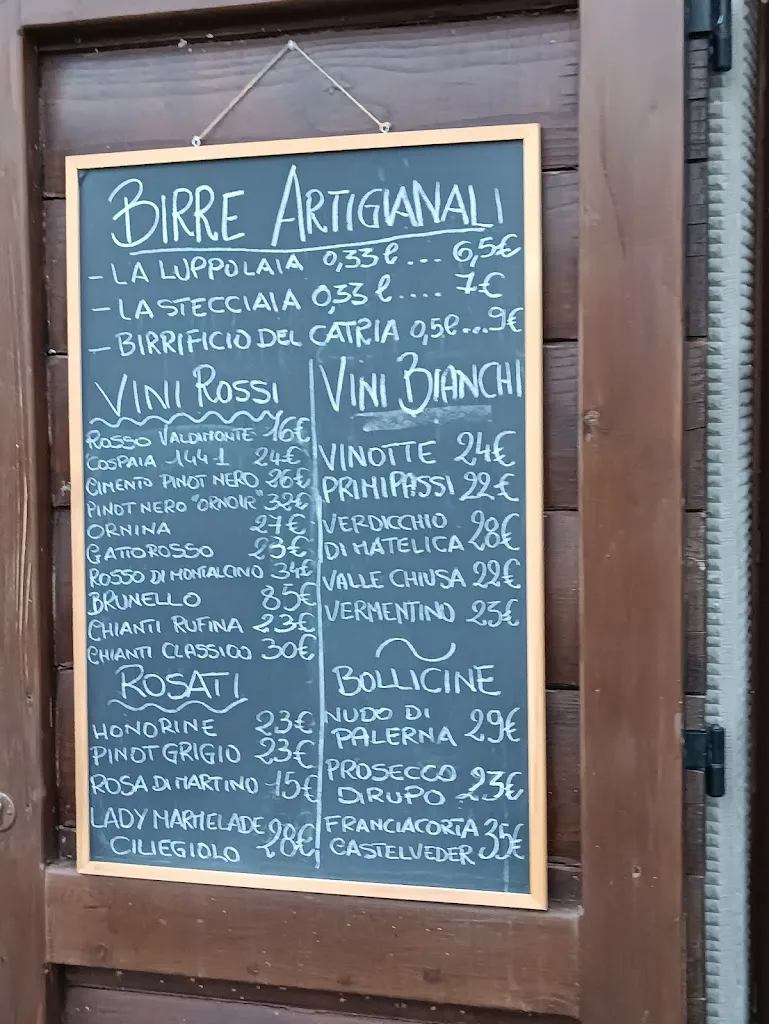 BIRRE ARTIGIANALI
- LA LUPPOLAIA 0,33 l ... 6,5€
- LA STECCIAIA 0,33 l .... 7€
- BIRRIFICIO DEL CATRIA 0,5l ... 9€
VINI ROSSI
ROSSO VALDIMONTE 16€
COSPAIA 1441 24€
CIMENTO PINOT NERO 26€
PINOT NERO "ORNOIR" 32€
ORNINA 27€
GATTOROSSO 23€
ROSSO DI MONTALCINO 34€
BRUNELLO 85€
CHIANTI RUFINA 23€
CHIANTI CLASSICO 30€
ROSATI
HONORINE 23€
PINOT GRIGIO 23€
ROSA DI MARTINO 15€
LADY MARMELADE
CILIEGIOLO 28€
VINI BIANCHI
VINOTTE 24€
PRIMIPASSI 22€
VERDICCHIO
DI MATELICA 28€
VALLE CHIUSA 22€
VERMENTINO 23€
BOLLICINE
NUDO DI
PALERNA 29€
PROSECCO
DIRUPO 23€
FRANCIACORTA 35€
CASTELVEDER